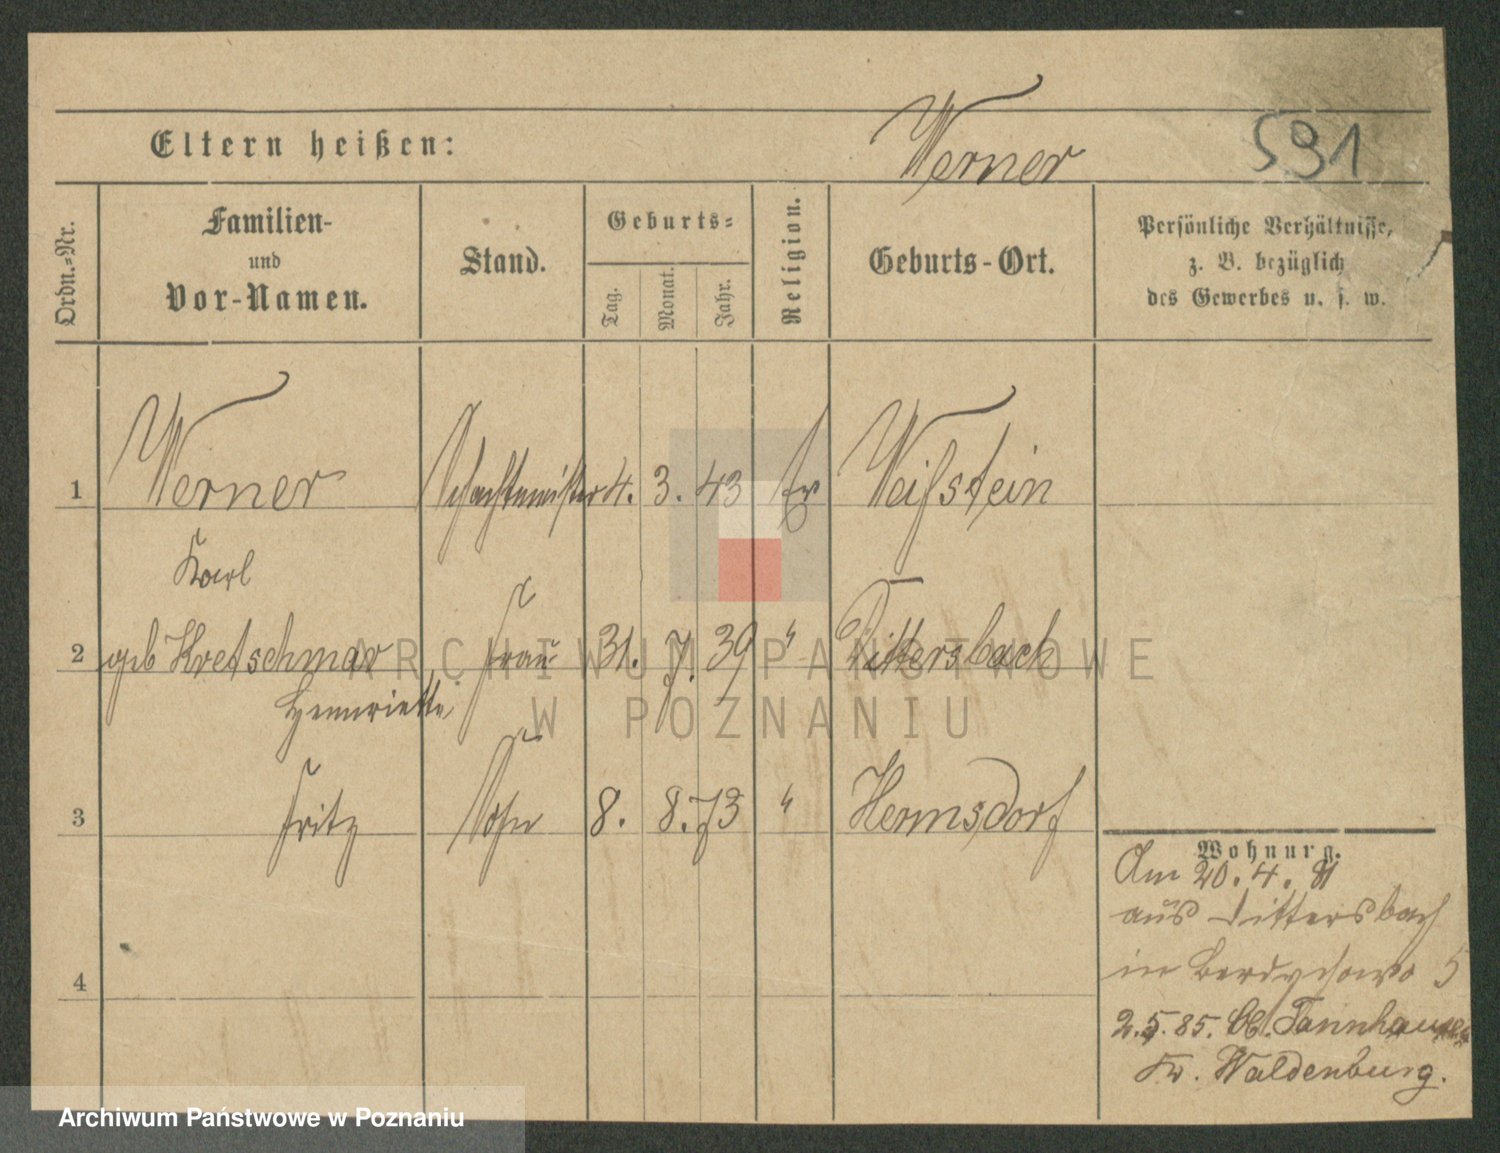 Eltern heißen:
Werner
591
Ordn.=Nr.
Familien-
und
Vor-Namen.
Stand.
Geburts=
Tag.
Monat.
Jahr.
Religion.
Geburts-Ort.
Persönliche Verhältnisse,
z. B. bezüglich
des Gewerbes u. s. w.
1 Werner Schachtmeister 4. 3. 43 ev Weißstein
Karl
2 geb Kretschmar Frau 31. 7. 39 " Dittersbach
Hennriette
3 Fritz Sohn 8. 8. 73 " Hermsdorf
4
Wohnung.
Am 20. 4. 81
aus Dittersbach
in Berdychowo 5
2. 5. 85. Tannhausen
Kr. Waldenburg.
ARCHIWUM PAŃSTWOWE
W POZNANIU
Archiwum Państwowe w Poznaniu